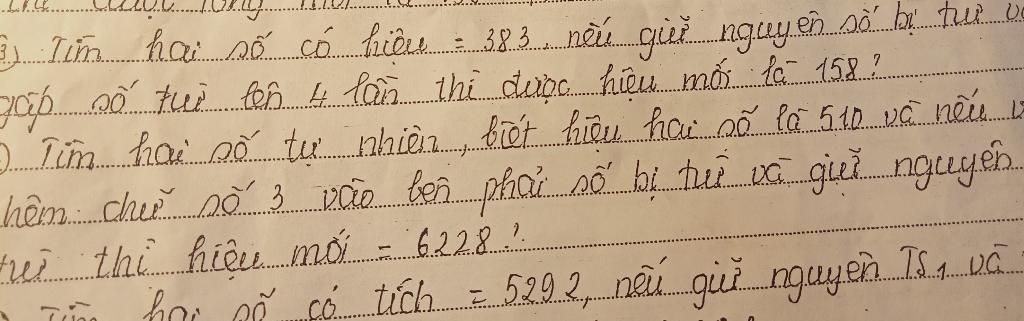 3) Tìm hai số có hiệu = 383, nếu giữ nguyên số bị trừ và
gấp số trừ lên 4 lần thì được hiệu mới là 158?
) Tìm hai số tự nhiên, biết hiệu hai số là 510 và nếu
thêm chữ số 3 vào bên phải số bị trừ và giữ nguyên
trừ thì hiệu mới = 6228?
Tìm hai số có tích = 5292, nếu giữ nguyên TS1 và